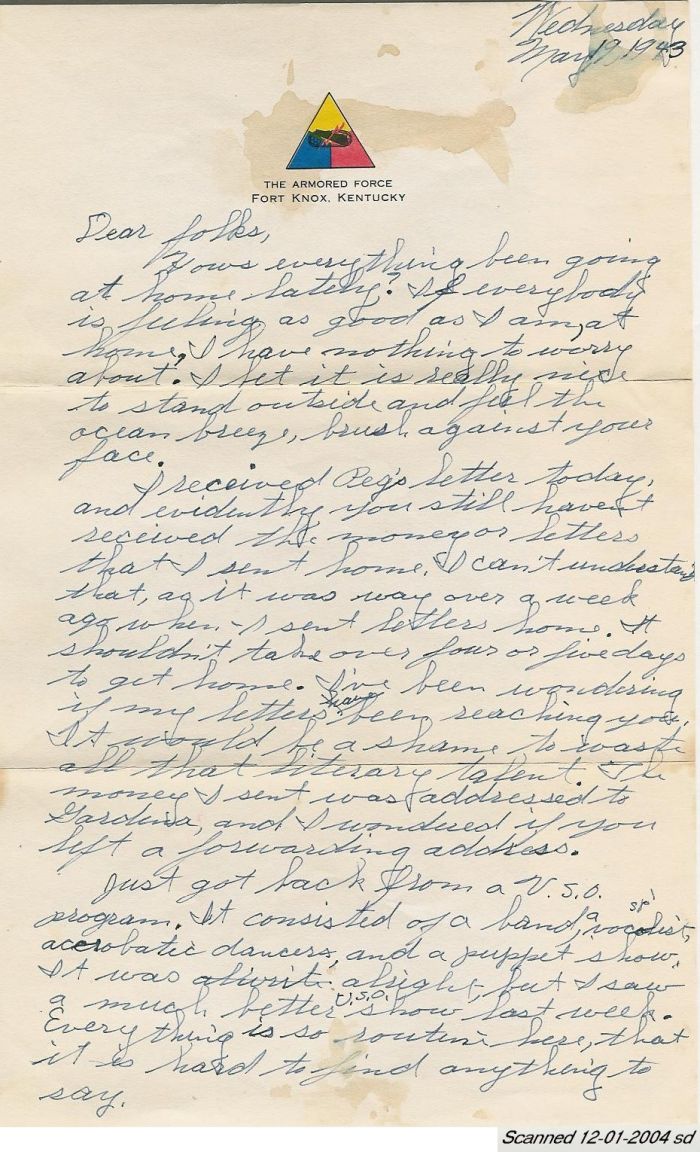 Wednesday
May 19, 1943
THE ARMORED FORCE
FORT KNOX, KENTUCKY
Dear folks,
Hows everything been going
at home lately? If everybody
is feeling as good as I am, at
home, I have nothing to worry
about. I bet it is really nice
to stand outside and feel the
ocean breeze, brush against your
face.
I received Peg's letter today,
and evidently you still haven't
received the money or letters
that I sent home. I can't understand
that, as it was way over a week
ago when I sent letters home. It
shouldn't take over four or five days
to get home. I've been wondering
if my letters have been reaching you.
It would be a shame to waste
all that literary talent. The
money I sent was addressed to
Gardena, and I wondered if you
left a forwarding address.
Just got back from a U.S.O.
program. It consisted of a band, a vocalist, sp
accrobatic dancers, and a puppet show.
It was alwrite alright, but I saw
a much better U.S.O. show last week.
Everything is so routine here, that
it is hard to find anything to
say.
Scanned 12-01-2004 sd